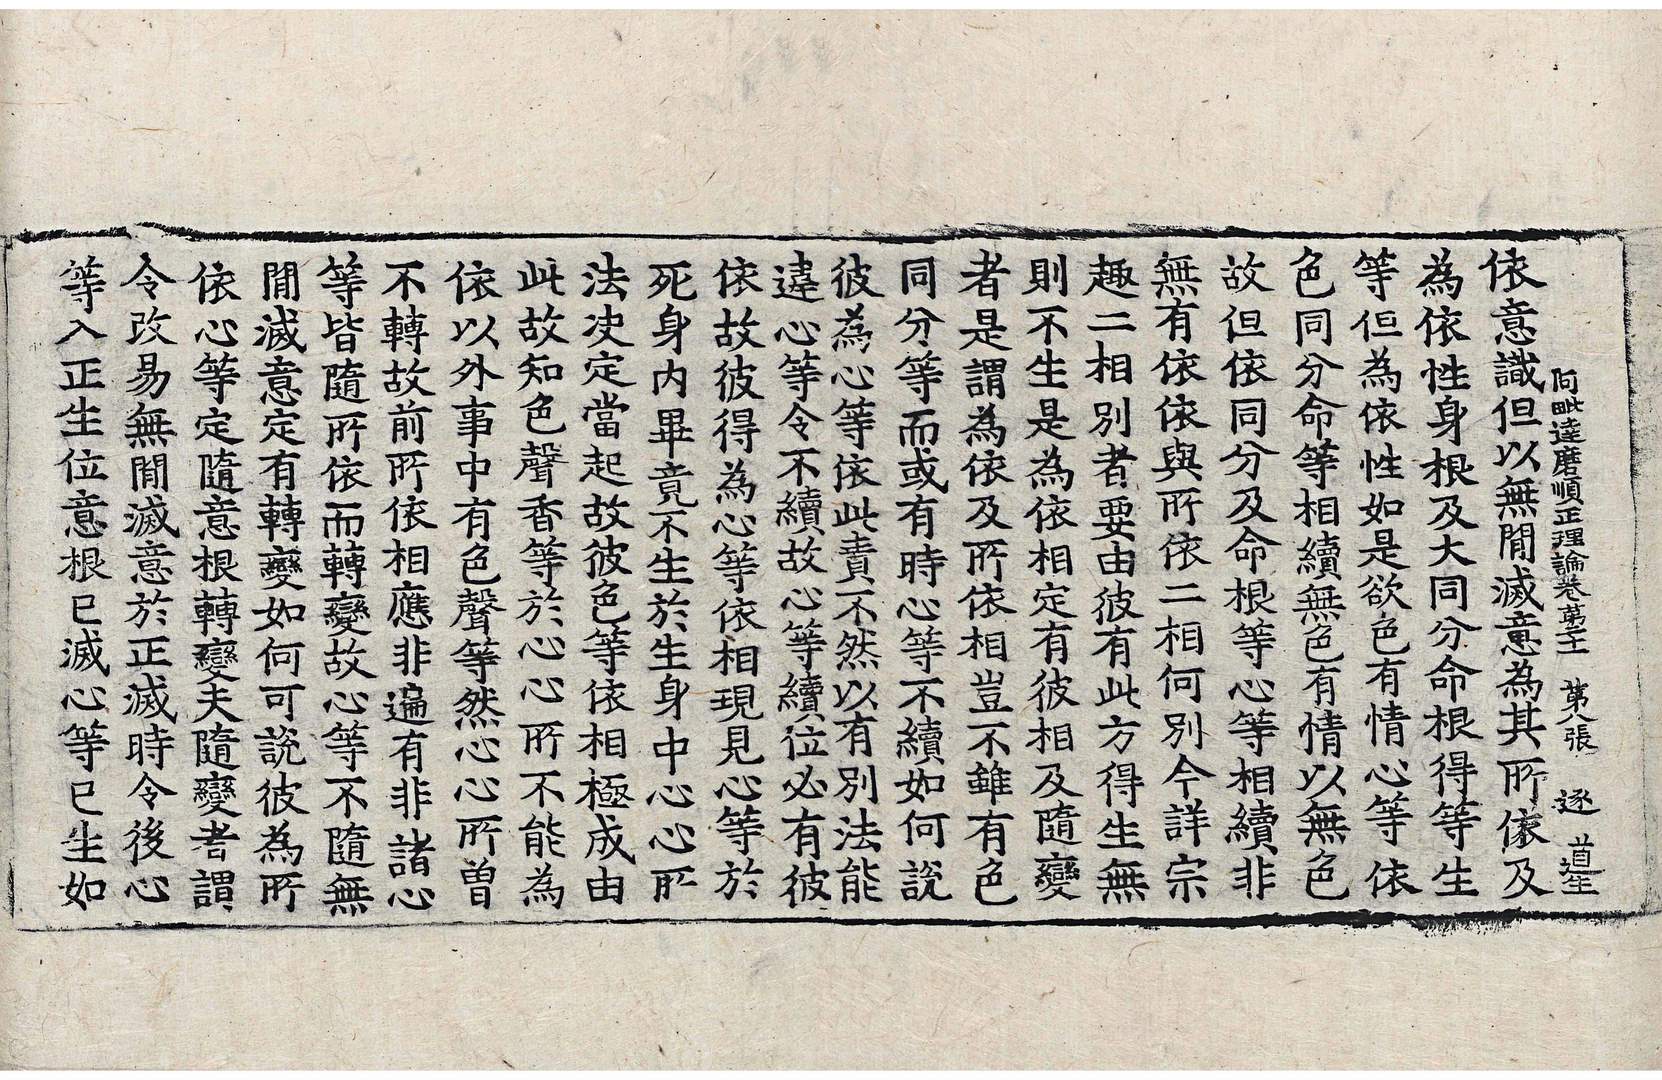 阿毗達磨順正理論卷苐二十　苐八張　逐　道生
依意識但以無閒滅意為其所依及
為依性身根及大同分命根得等生
等但為依性如是欲色有情心等依
色同分命等相續無色有情以無色
故但依同分及命根等心等相續非
無有依依與所依二相何別今詳宗
趣二相別者要由彼有此方得生無
則不生是為依相定有彼相及隨變
者是謂為依及所依相豈不雖有色
同分等而或有時心等不續如何說
彼為心等依此責不然以有別法能
違心等令不續故心等續位必有彼
依故彼得為心等依相現見心等於
死身內畢竟不生於生身中心心所
法決定當起故彼色等依相極成由
此故知色聲香等於心心所不能為
依以外事中有色聲等然心心所曾
不轉故前所依相應非遍有非諸心
等皆隨所依而轉變故心等不隨無
閒滅意定有轉變如何可說彼為所
依心等定隨意根轉變夫隨變者謂
令改易無閒滅意於正滅時令後心
等入正生位意根已滅心等已生如